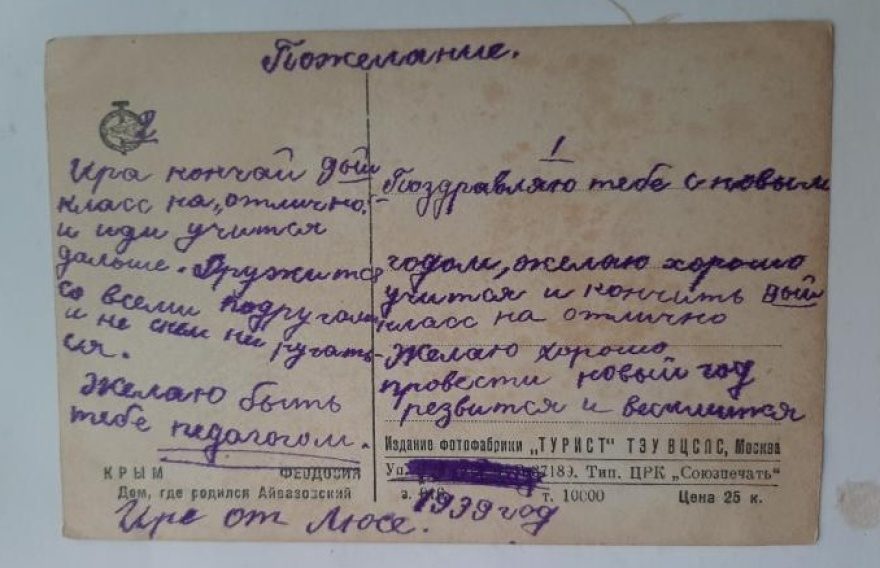 Пожелание.
1
Поздравляю тебе с новым
годом, желаю хорошо
учится и кончить
класс на отлично
Желаю хорошо
провести новый год
резвится и веселится
2
Ира кончай
класс на „отлично“
и иди учится
дальше. Дружится
со всеми подругами
и не с кем не ругать-
ся.
Желаю быть
тебе педагогом.
Издание фотофабрики „ТУРИСТ" ТЭУ ВЦСПС, Москва
Тип. ЦРК „Союзпечать"
т. 10000 Цена 25 к.
КРЫМ ФЕОДОСИЯ
Дом, где родился Айвазовский
Ире от Люсе. 1939 год